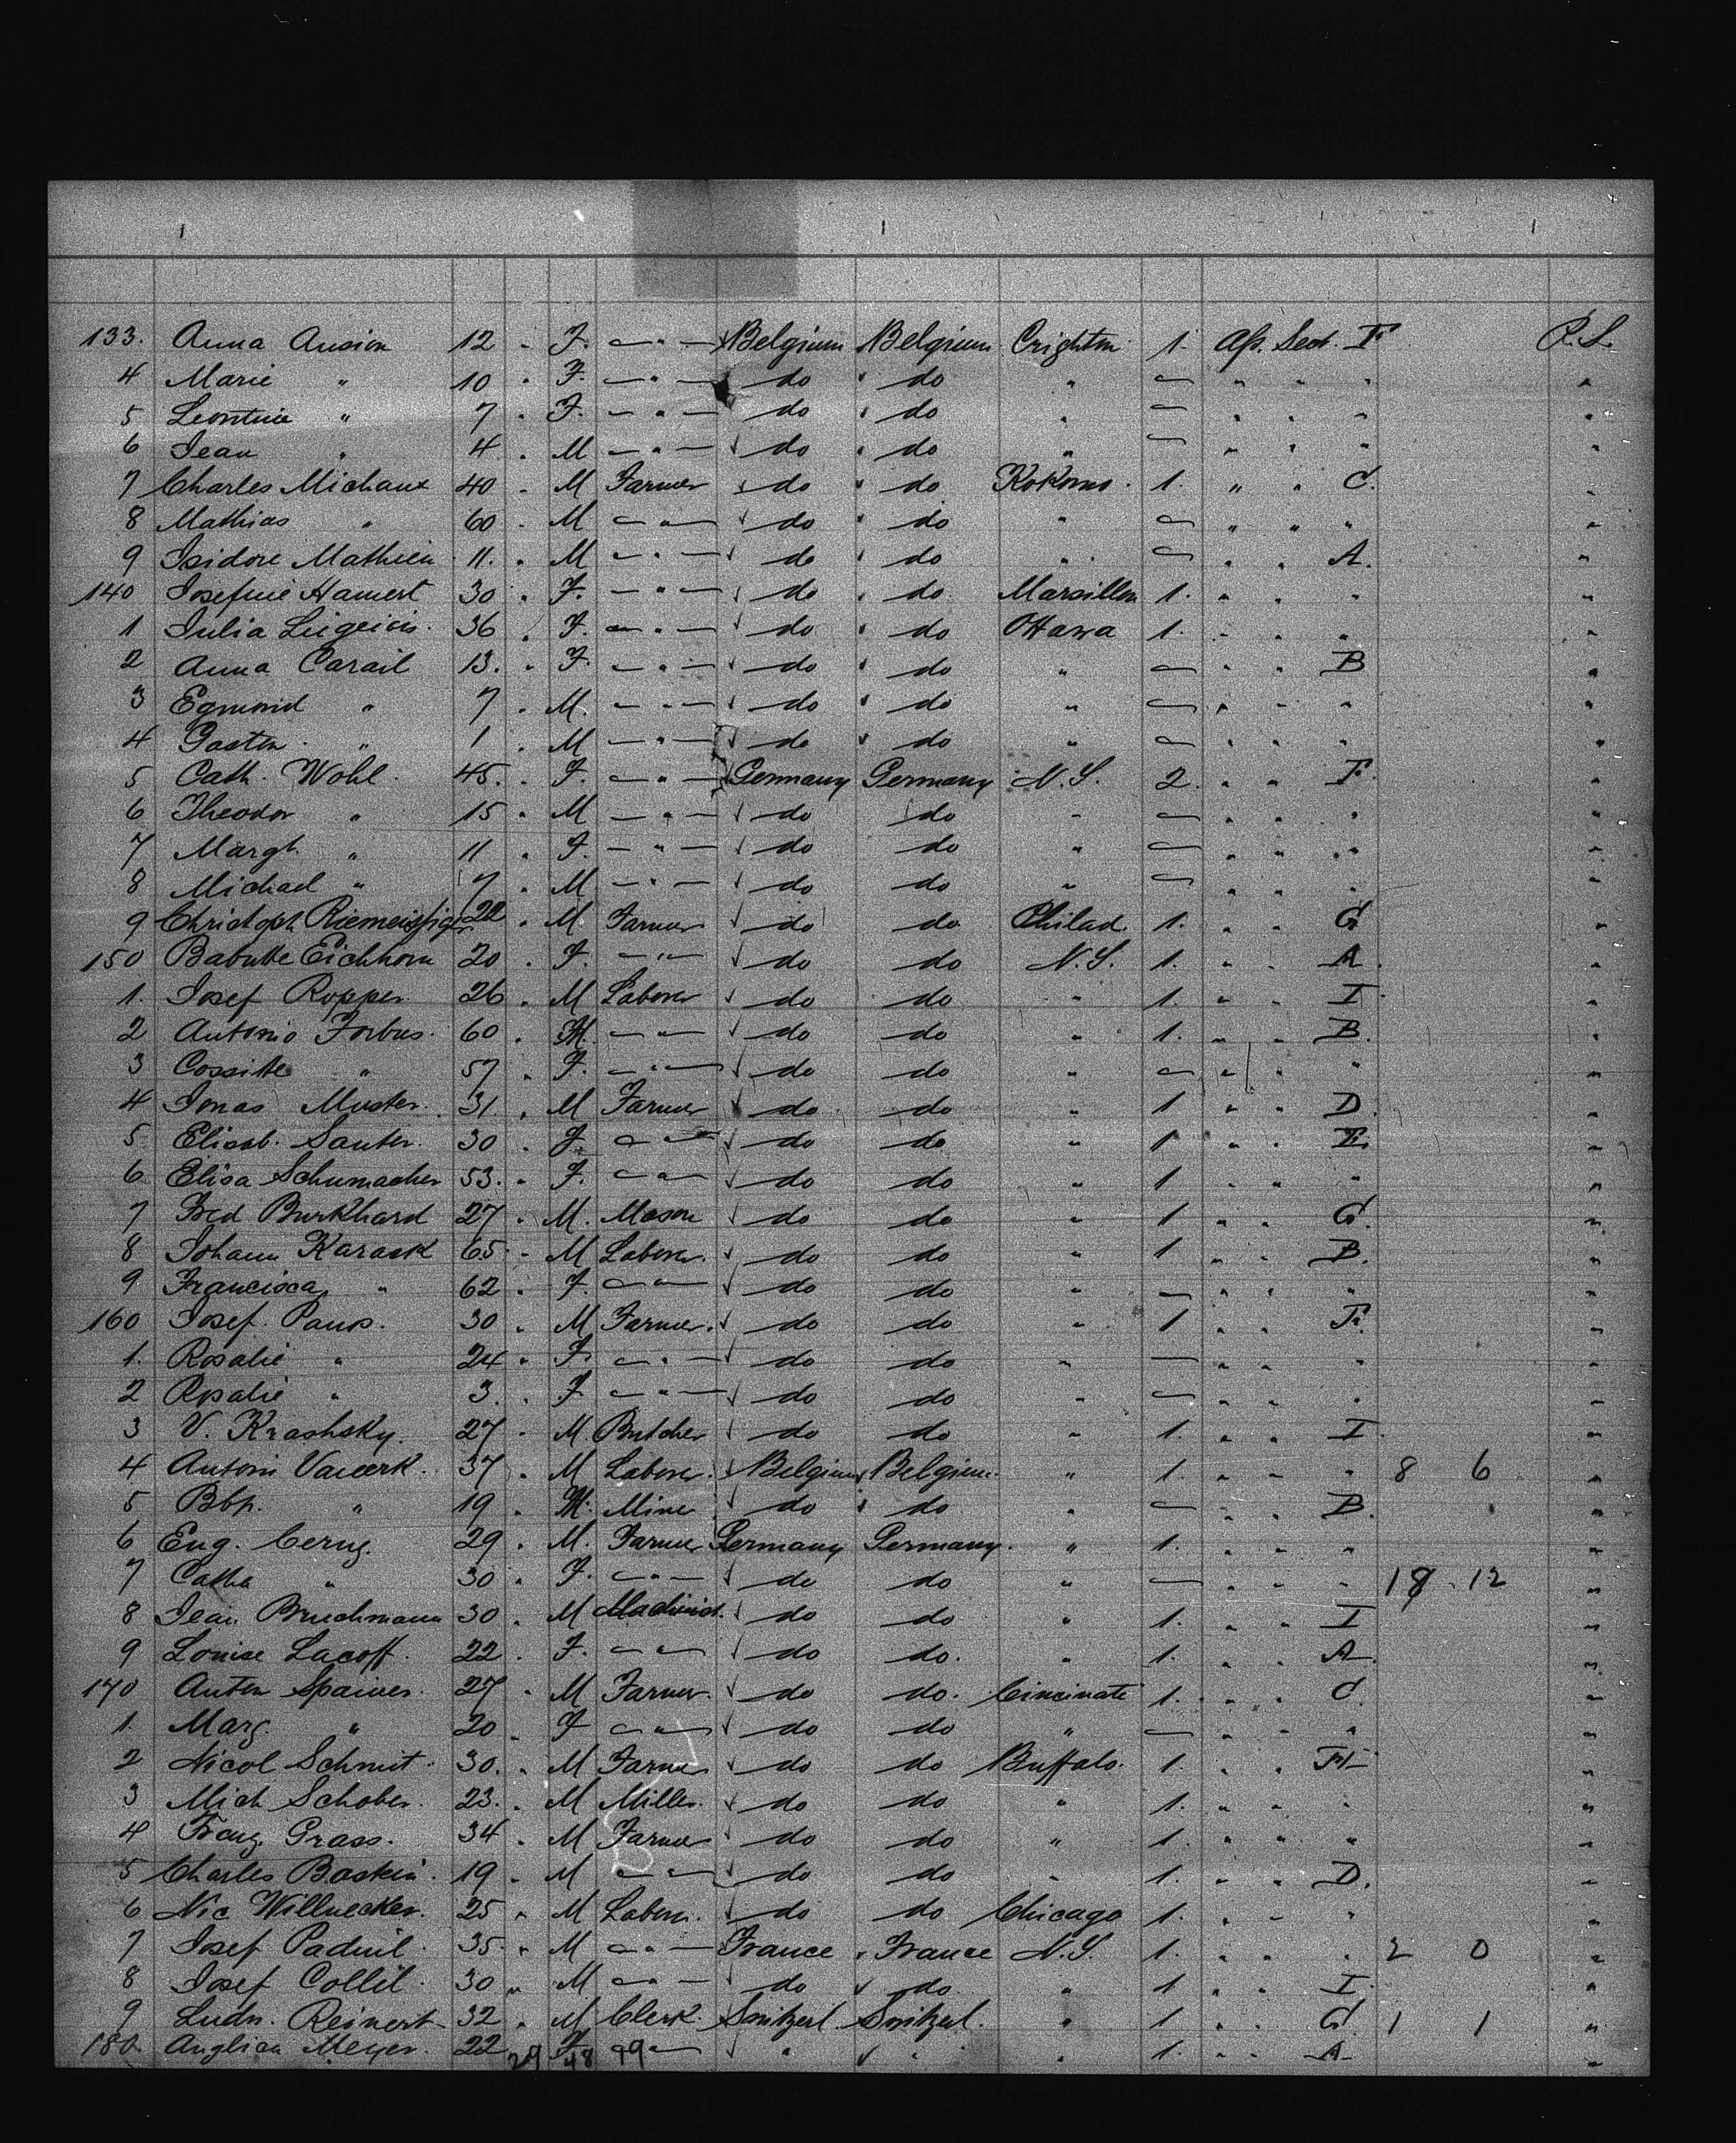 133. Anna Ansion 12 " F. — " — Belgium Belgium Crighton 1. Aft. Sect. F. P.S.
4 Marie " 10 " F. — " — do do " — " " " "
5 Leontine " 7 " F. — " — do do " — " " " "
6 Jean " 4 " M — " — do do " — " " " "
7 Charles Michaux 40 " M Farmer do do Kokomo 1. " " C. "
8 Mathias " 60 " M — " — do do " — " " " "
9 Isidore Mathieu 11. " M — " — do do " — " " A. "
140 Josefine Hamert 30 " F. — " — do do 1. " " " "
1 Julia 36 " F. — " — do do Ottawa 1. " " " "
2 Anna Carail 13. " F. — " — do do " — " " B "
3 Egmond " 7 " M. — " — do do " — " " " "
4 Gaston " 1 " M — " — do do " — " " " "
5 Cath. Wohl 45. " F. — " — Germany Germany N.Y. 2. " " F. "
6 Theodor " 15 " M — " — do do " — " " " "
7 Margt. " 11 " F. — " — do do " — " " " "
8 Michael " 7 " M — " — do do " — " " " "
9 Christoph 22 " M. Farmer do do Philad. 1. " " G "
150 Babette Eichhorn 20 " F. — " — do do N.Y. 1. " " A. "
1. Josef Ropper 26 " M Laborer do do " 1. " " I "
2 Antonio Forbus 60 " M. — " — do do " 1. " " B. "
3 Cossitte " 57 " F. — " — do do " — " " " "
4 Jonas Muster 31. " M Farmer do do " 1 " " D. "
5 Elisab. Sauter 30 " F. — " — do do " 1 " " F. "
6 Elisa Schumacher 53. " F. — " — do do " 1 " " " "
7 Fred Burkhard 27 " M. Mason do do " 1 " " G. "
8 Johann Karask 65 " M Laborer do do " 1 " " B. "
9 Francisca " 62 " F. — " — do do " — " " " "
160 Josef Paus 30 " M Farmer do do " 1 " " F. "
1. Rosalie " 24 " F. — " — do do " — " " " "
2 Rosalie " 3. " F. — " — do do " — " " " "
3 V. Krashsky. 27 " M Butcher do do " 1. " " I. "
4 Antoni 37 " M Laborer Belgium Belgium " 1. " " " 8 6 "
5 Bbp. " 19 " M. Miner do do " — " " B. "
6 Eug. Cerny. 29 " M. Farmer Germany Germany " 1. " " " "
7 Catha " 30 " F. — " — do do " — " " " 18 12 "
8 Jean Bruchmann 30 " M Machinist. do do " 1. " " I "
9 Louise Lacoff 22 " F. — " — do do. " 1. " " A. "
170 Anton Spainer 27 " M Farmer. do do. Cincinati 1. " " C. "
1. Marg. " 20 " F — " — do do " — " " " "
2 Nicol Schmit 30. " M Farmer do do Buffalo. 1. " " "
3 Mich Schober. 23. " M Miller. do do " 1. " " " "
4 Franz Grass. 34 " M Farmer do do " 1. " " " "
5 Charles Baskin 19 " M — " — do do " 1. " " D. "
6 Nic Willnecker. 25 " M Laborer. do do Chicago 1. " " " "
7 Josef Paduil 35. " M — " — France France N.Y. 1. " " " 2 0 "
8 Josef Collil 30 " M — " — do do " 1 " " I. "
9 Ludn. Reinert 32 " M Clerk Switzerl. Switzerl. " 1 " " G. 1 1 "
180. Anglica Meyer. 22 " F. — " — " " " 1. " " A. "
29 48 19